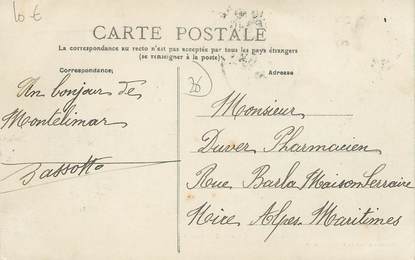 10 €
CARTE POSTALE
La correspondance au recto n'est pas acceptée par tous les pays étrangers
(se renseigner à la poste)
Correspondance:
Adresse
26
Un bonjour de
Montelimar
Bassotto
Monsieur
Duver Pharmacien
Rue Barla Maison Serraire
Nice Alpes Maritimes